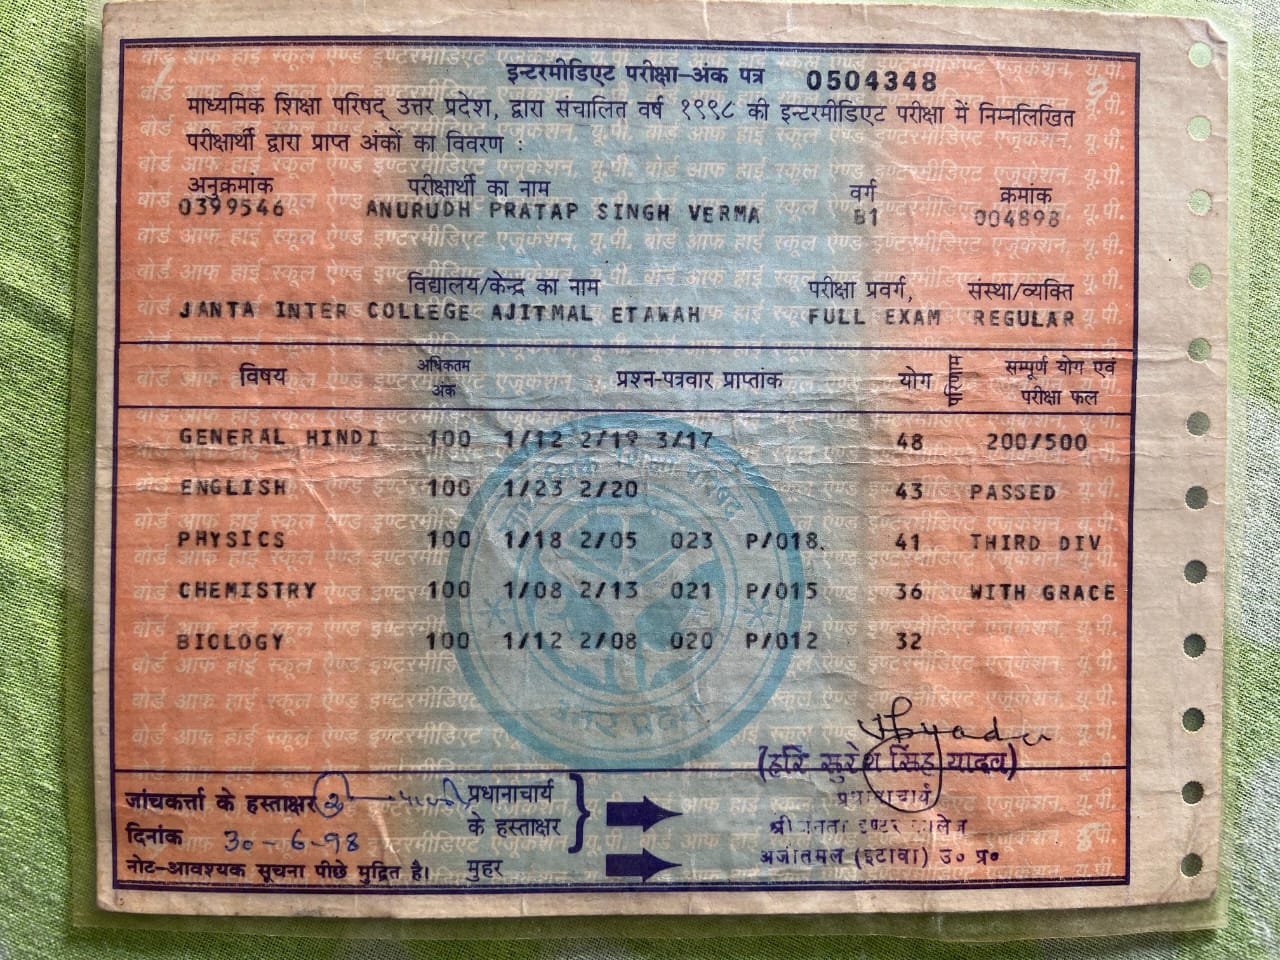 इन्टरमीडिएट परीक्षा-अंक पत्र 0504348
माध्यमिक शिक्षा परिषद् उत्तर प्रदेश, द्वारा संचालित वर्ष १९९८ की इन्टरमीडिएट परीक्षा में निम्नलिखित
परीक्षार्थी द्वारा प्राप्त अंकों का विवरण :
अनुक्रमांक परीक्षार्थी का नाम वर्ग क्रमांक
0399546 ANURUDH PRATAP SINGH VERMA B1 004898
विद्यालय/केन्द्र का नाम परीक्षा प्रवर्ग, संस्था/व्यक्ति
JANTA INTER COLLEGE AJITMAL ETAWAH FULL EXAM REGULAR
विषय अधिकतम अंक प्रश्न-पत्रवार प्राप्तांक योग परिणाम सम्पूर्ण योग एवं परीक्षा फल
GENERAL HINDI 100 1/12 2/19 3/17 48 200/500
ENGLISH 100 1/23 2/20 43 PASSED
PHYSICS 100 1/18 2/05 023 P/018. 41 THIRD DIV
CHEMISTRY 100 1/08 2/13 021 P/015 36 WITH GRACE
BIOLOGY 100 1/12 2/08 020 P/012 32
उत्तर प्रदेश
(हरि सुरेश सिंह यादव)
जांचकर्त्ता के हस्ताक्षर प्रधानाचार्य प्रधानाचार्य
दिनांक 30-6-98 के हस्ताक्षर श्री जनता इण्टर कालेज
नोट-आवश्यक सूचना पीछे मुद्रित है। मुहर अजीतमल (इटावा) उ० प्र०